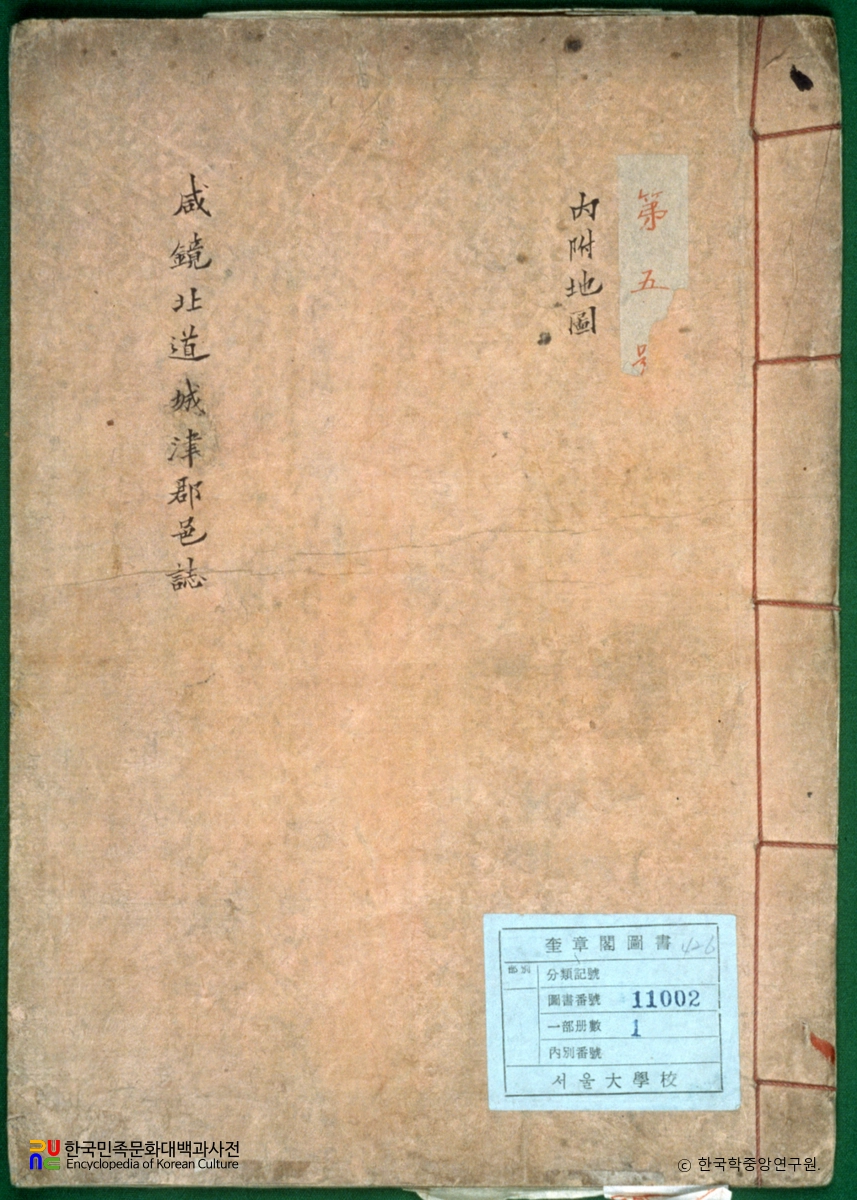 第五号
內附地圖
咸鏡北道城津郡邑誌
奎章閣圖書
部別
分類記號
圖書番號 11002
一部册數 1
內別番號
서울大學校
한국민족문화대백과사전
Encyclopedia of Korean Culture
© 한국학중앙연구원.